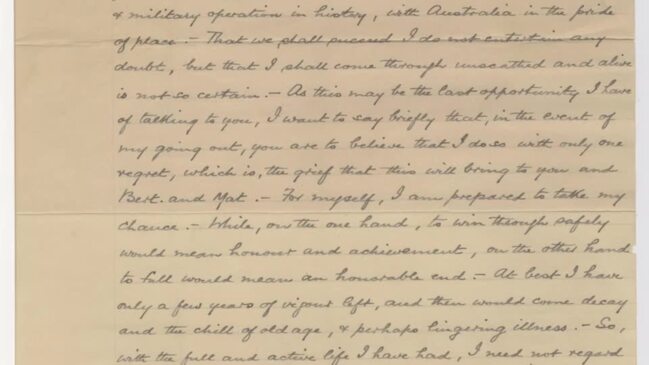 & military operation in history, with Australia in the pride
of place. – That we shall succeed I do not entertain any
doubt, but that I shall come through unscathed and alive
is not so certain. – As this may be the last opportunity I have
of talking to you, I want to say briefly that, in the event of
my going out, you are to believe that I do so with only one
regret, which is, the grief that this will bring to you and
Bert. and Mat. – For myself, I am prepared to take my
chance. – While, on the one hand, to win through safely
would mean honour and achievement, on the other hand
to fall would mean an honorable end. – At best I have
only a few years of vigour left, and then would come decay
and the chill of old age, & perhaps lingering illness. – So,
with the full and active life I have had, I need not regard